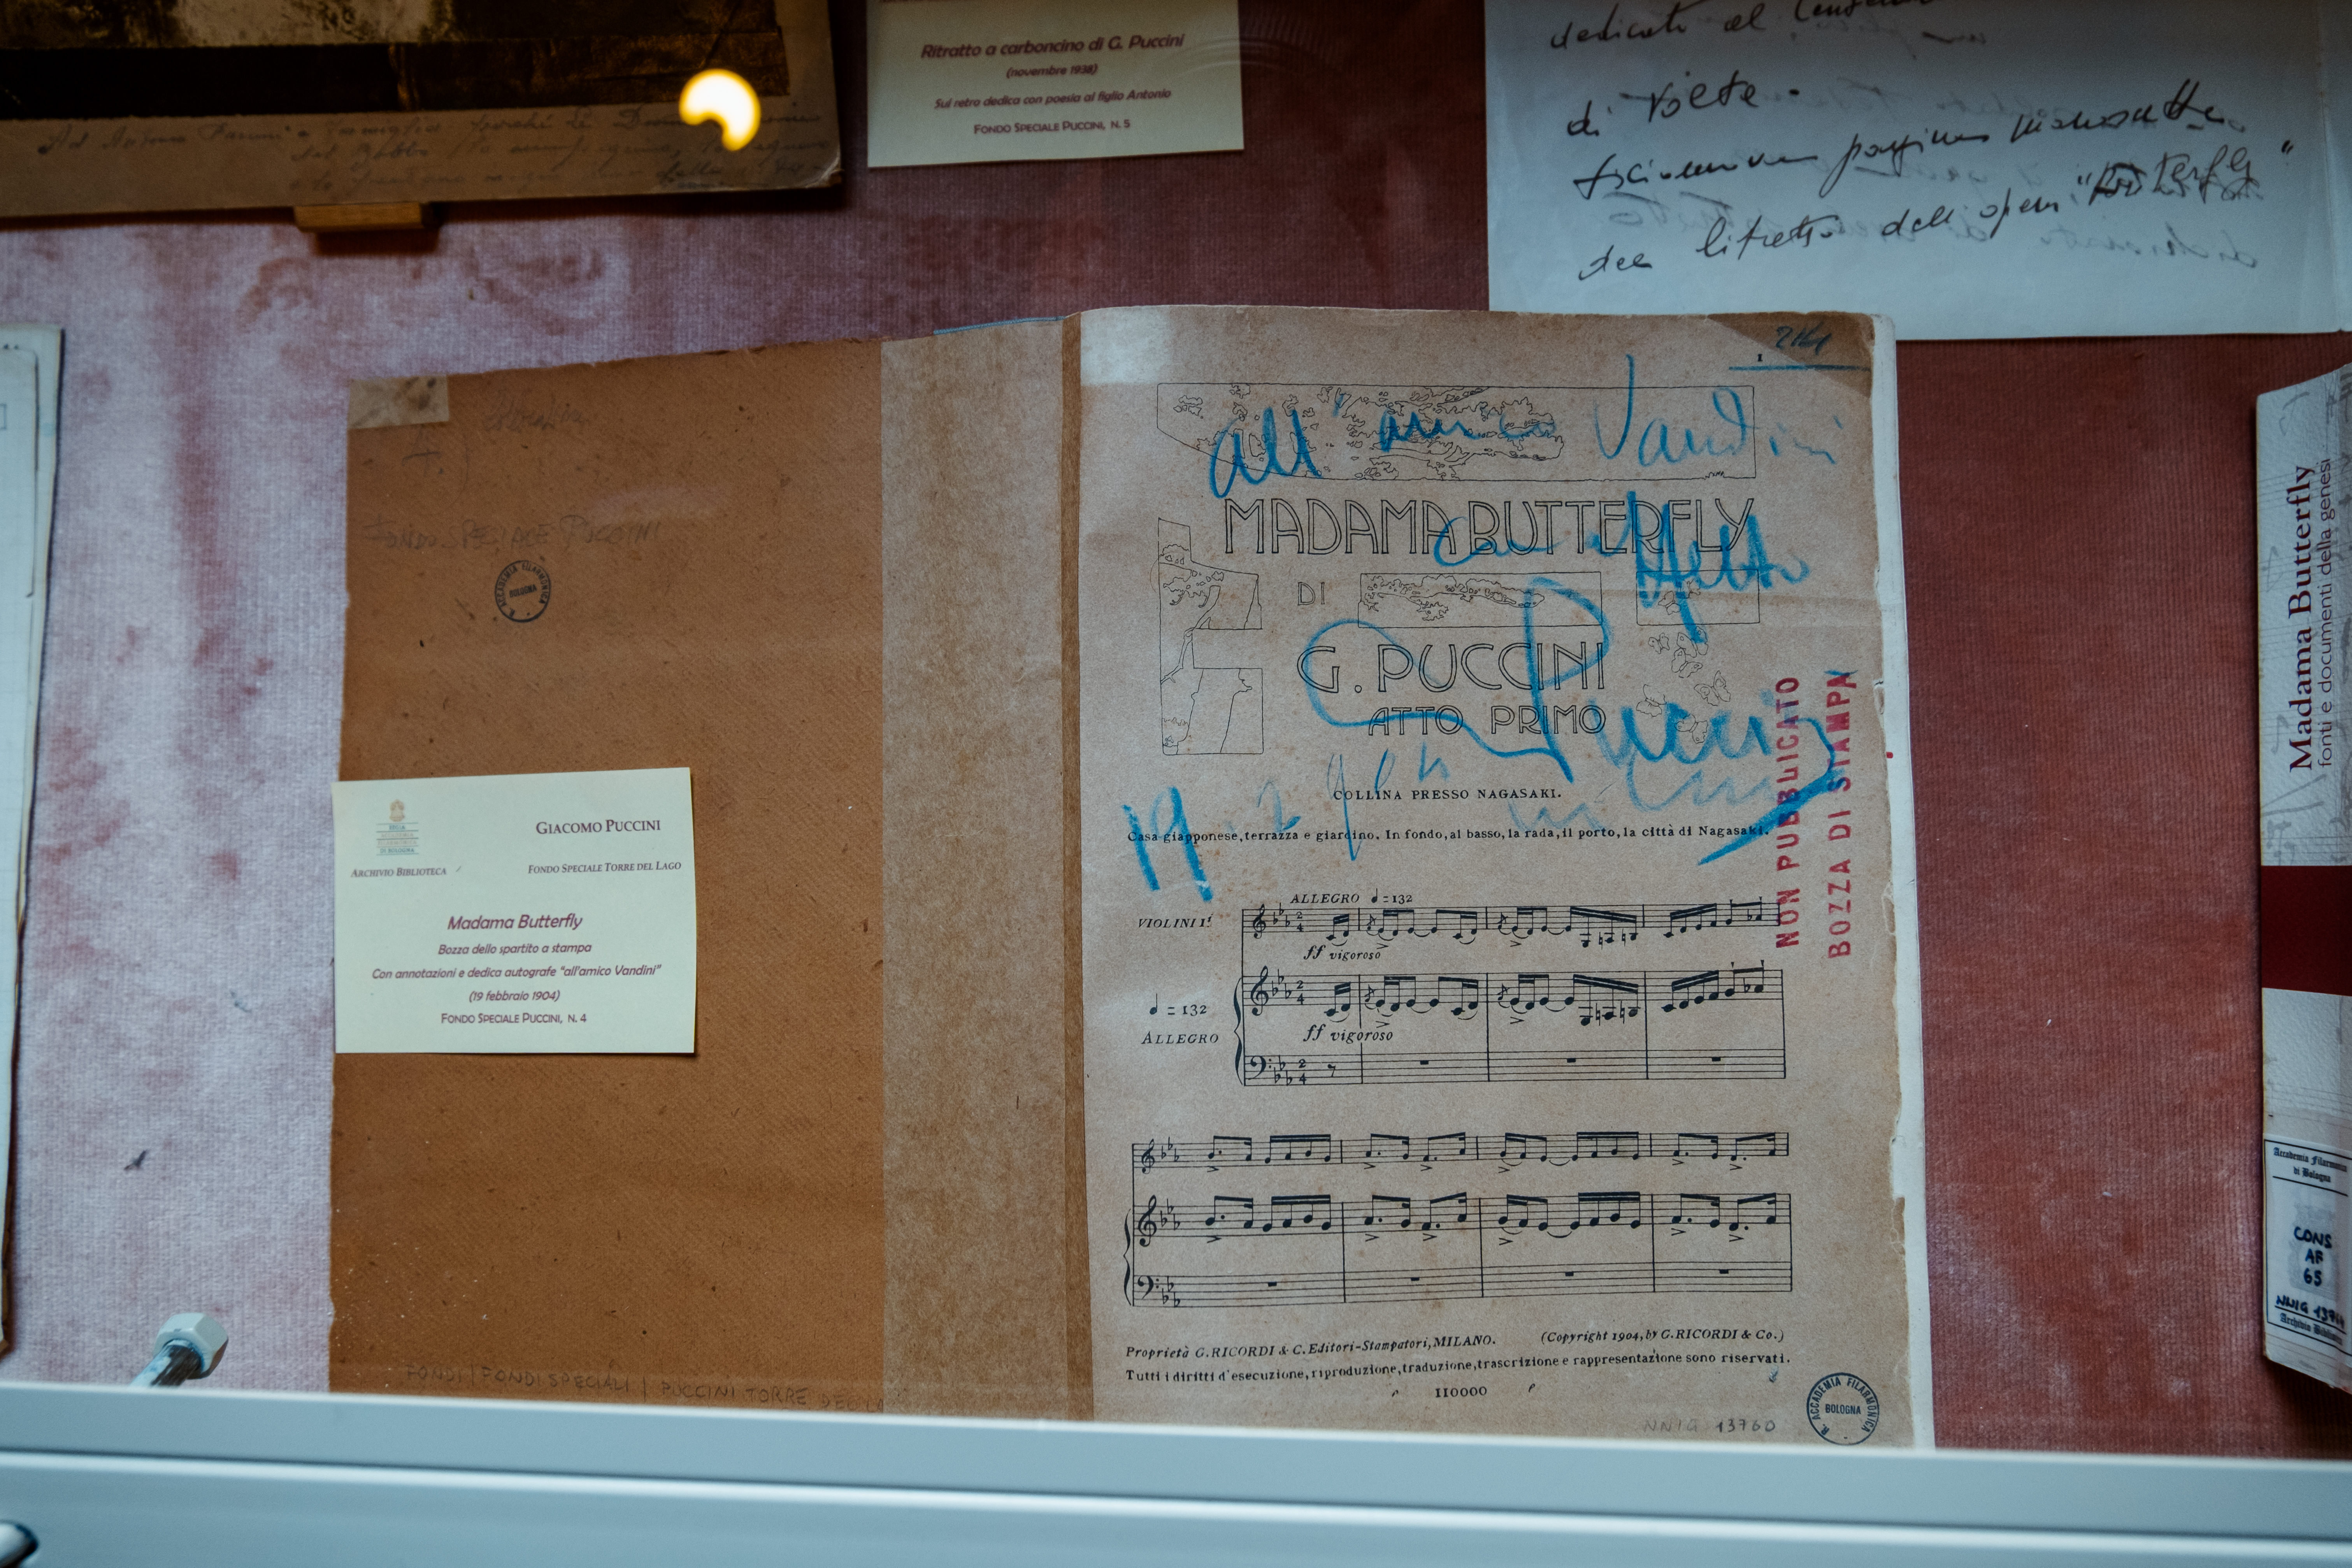 Ritratto a carboncino di G. Puccini
(novembre 1938)
Sul retro dedica con poesia al figlio Antonio
FONDO SPECIALE PUCCINI, N. 5
dedicato al
di Volte.
pagina manoscritta
del libretto dell'opera "Butterfly"
FONDO SPECIALE PUCCINI
R. ACCADEMIA FILARMONICA
BOLOGNA
GIACOMO PUCCINI
ARCHIVIO BIBLIOTECA / FONDO SPECIALE TORRE DEL LAGO
Madama Butterfly
Bozza dello spartito a stampa
Con annotazioni e dedica autografe "all'amico Vandini"
(19 febbraio 1904)
FONDO SPECIALE PUCCINI, N. 4
FONDI | FONDI SPECIALI | PUCCINI TORRE DEL LA
1
all'amico Vandini
MADAMA BUTTERFLY
con affetto
DI
G. PUCCINI
G Puccini
ATTO PRIMO
19 2
COLLINA PRESSO NAGASAKI.
Casa giapponese, terrazza e giardino. In fondo, al basso, la rada, il porto, la città di Nagasaki.
NON PUBBLICATO
BOZZA DI STAMPA
ALLEGRO ♩=132
VIOLINI I.i
ff vigoroso
♩=132
ALLEGRO
ff vigoroso
Proprietà G. RICORDI & C. Editori-Stampatori, MILANO. (Copyright 1904, by G. RICORDI & Co.)
Tutti i diritti d'esecuzione, riproduzione, traduzione, trascrizione e rappresentazione sono riservati.
110000
NNIG 13760
R. ACCADEMIA FILARMONICA
BOLOGNA
Madama Butterfly
fonti e documenti della genesi
Accademia Filarmonica
di Bologna
CONS
AF
65
NNIG
Archivio